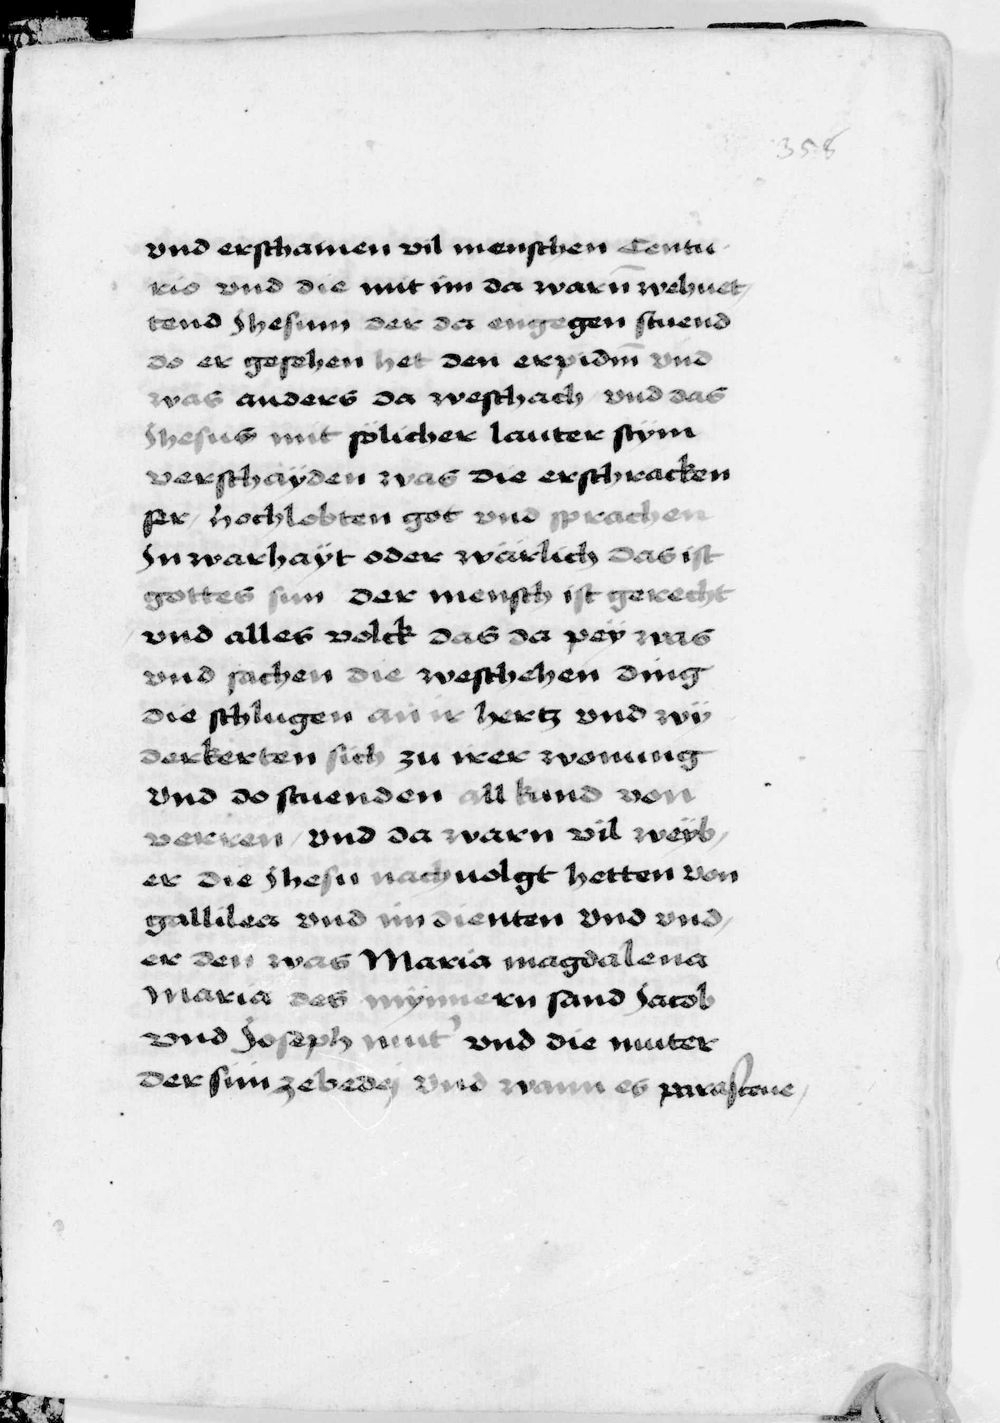 358
vnd erschainen vil menschen Centu
rio vnd die mit im da warn̄ wehuet/
tend Jhesum der da engegen stuend
do er gesehen het den erpidm̄ vnd
was anders da weschach / vnd das
Jhesus mit sölicher lauter stÿm
verschaÿden was die erschracken
ser / hochlobten got vnd sprachen
In warhaÿt oder wärlich das ist
gottes sun der mensch ist gerecht
vnd alles volck das da peÿ was
vnd sachen die weschehen ding
die schlugen an ir hertz vnd wÿ
derkerten sich zu irer wonung
Vnd do stuenden all kund von
verren / vnd da warn vil weÿb/
er die Jhesu nachuolgt hetten von
gallilea vnd im dienten Vnd vnd/
er den was Maria magdalena
Maria des mÿnnern sand Jacob
vnd Joseph mut' vnd die muter
der sun zebedej Vnd wann es parasceue/